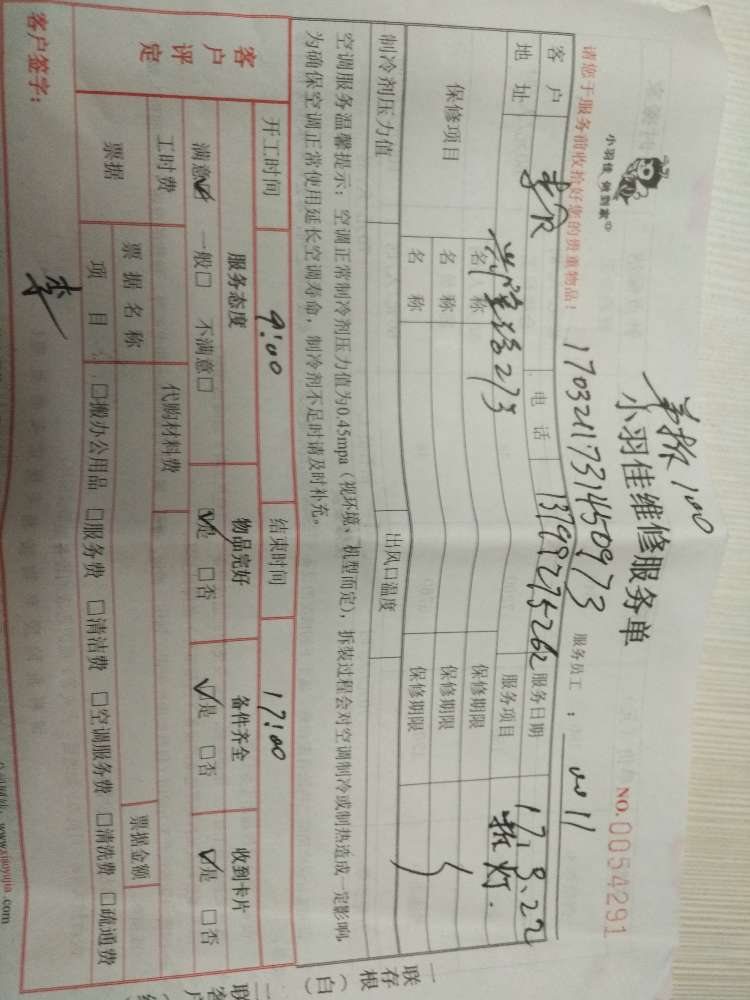 小羽佳 做到家
小羽佳维修服务单
NO.0054291
17032117314450973
服务员工：
请您于服务前收拾好您的贵重物品！
客户 电话 13799275262 服务日期 17.3.22
地址 服务项目 拆灯.
保修项目 名称 保修期限
名称 保修期限
名称 保修期限
制冷剂压力值 出风口温度
空调服务温馨提示：空调正常制冷剂压力值为0.45mpa（视环境、机型而定），拆装过程会对空调制冷或制热造成一定影响，
为确保空调正常使用延长空调寿命，制冷剂不足时请及时补充。
开工时间 9:00 结束时间 17:00
客户评定 服务态度 物品完好 备件齐全 收到卡片
满意☑ 一般□ 不满意□ ☑是 □否 ☑是 □否 ☑是 □否
工时费 代购材料费
票据 票据名称 票据金额
项目 □搬办公用品 □服务费 □清洁费 □空调服务费 □清洗费 □疏通费
客户签字： 李
一联存根（白）
二联客户